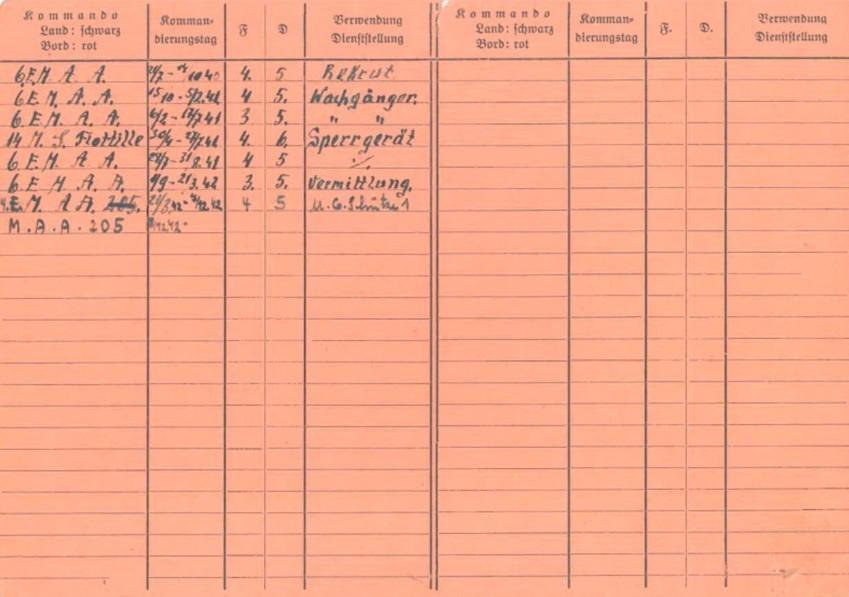 Kommando
Land: schwarz
Bord: rot
Komman-
dierungstag
F
D
Verwendung
Dienststellung
Kommando
Land: schwarz
Bord: rot
Komman-
dierungstag
F.
D.
Verwendung
Dienststellung
6.E.M A A. 10.40 4. 5 Rekrut
6.E.M. A. A. 15/10 - 5/2.41 4 5. Wachgänger.
6.E.M.A.A. 6/2 - 3 5. " "
14 M. S. Flottille 30/4 - 4. 6. Sperrgerät
6.E.M. A A. 4 5
6.E M A A. 9/9 - 21/3.42 3. 5. Vermittlung.
M. A A. 205. 4 5 M.G. Schütze 1
M.A.A. 205